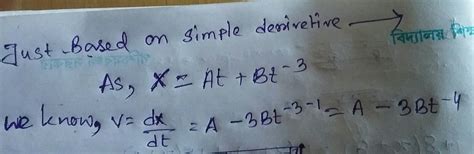 Just Based on simple derivetive →
As, X = At + Bt⁻³
we know, V = dx/dt = A - 3Bt⁻³⁻¹ = A - 3Bt⁻⁴